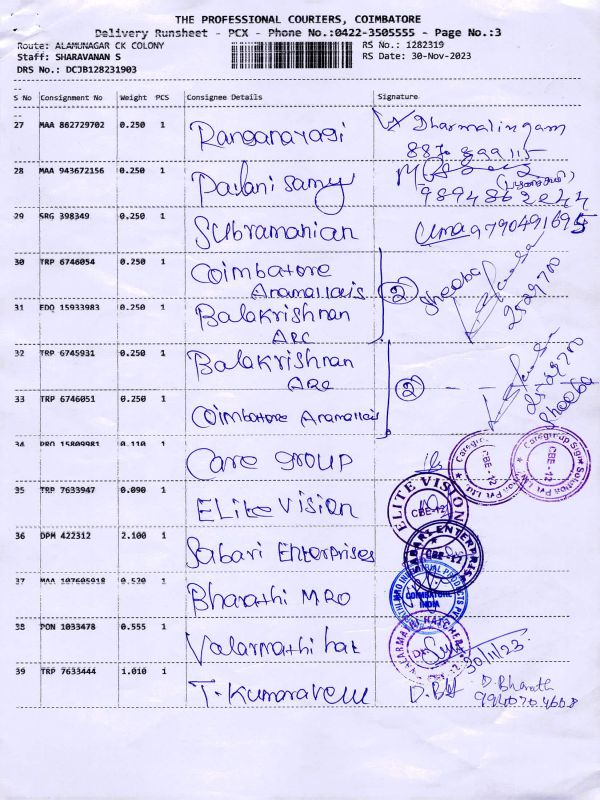 THE PROFESSIONAL COURIERS, COIMBATORE
Delivery Runsheet - PCX - Phone No.:0422-3505555 - Page No.:3
Route: ALAMUNAGAR CK COLONY RS No.: 1282319
Staff: SHARAVANAN S RS Date: 30-Nov-2023
DRS No.: DCJB128231903
S No Consignment No Weight PCS Consignee Details Signature
27 MAA 862729702 0.250 1 Ranganayagi Dharmalingam
28 MAA 943672156 0.250 1 Palanisamy
9894862244
29 SRG 398349 0.250 1 Subramanian Uma 9790491695
30 TRP 6746054 0.250 1 Coimbatore
Anamallais 2 Sheeba
31 EDQ 15933983 0.250 1 Balakrishnan
ARC 2529700
32 TRP 6745931 0.250 1 Balakrishnan
ARC 2 2529700
Sheeba
33 TRP 6746051 0.250 1 Coimbatore Anamallais
34 PRO 15809981 0.110 1 Care group
CBE-12
CBE-12
35 TRP 7633947 0.090 1 ELite Vision ELITE VISION
CBE-12
36 DPM 422312 2.100 1 Sabari Enterprises SABARI ENTERPRISES
CBE-12
37 MAA 107605918 0.520 1 Bharathi MRO
COIMBATORE
INDIA
38 PON 1033478 0.555 1 Valarmathi hat VALARMATHI HATCHERY
30/11/23
39 TRP 7633444 1.010 1 T. Kumaravelu D. Bharath
9940704668